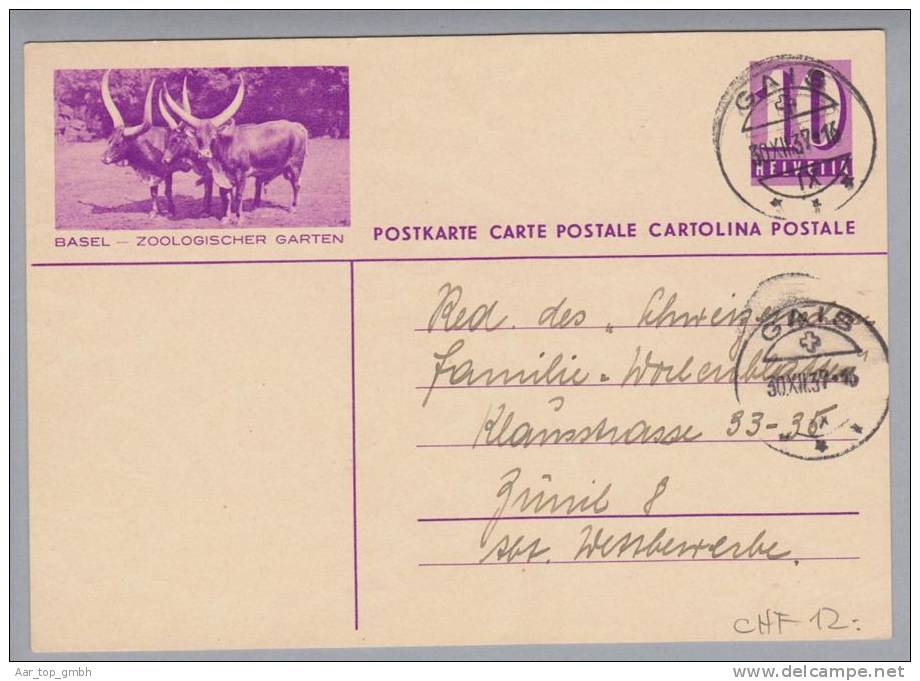 GAIS
30.XII.37-16
IX
HELVETIA
BASEL — ZOOLOGISCHER GARTEN
POSTKARTE CARTE POSTALE CARTOLINA POSTALE
Red. des „Schweizer
GAIS
Familie - Wochenblattes"
30.XII.37-16
Klausstrasse 33-35
Zürich 8
abt. Wettbewerbe.
CHF 12.-
Aar_top_gmbh
www.delcampe.net